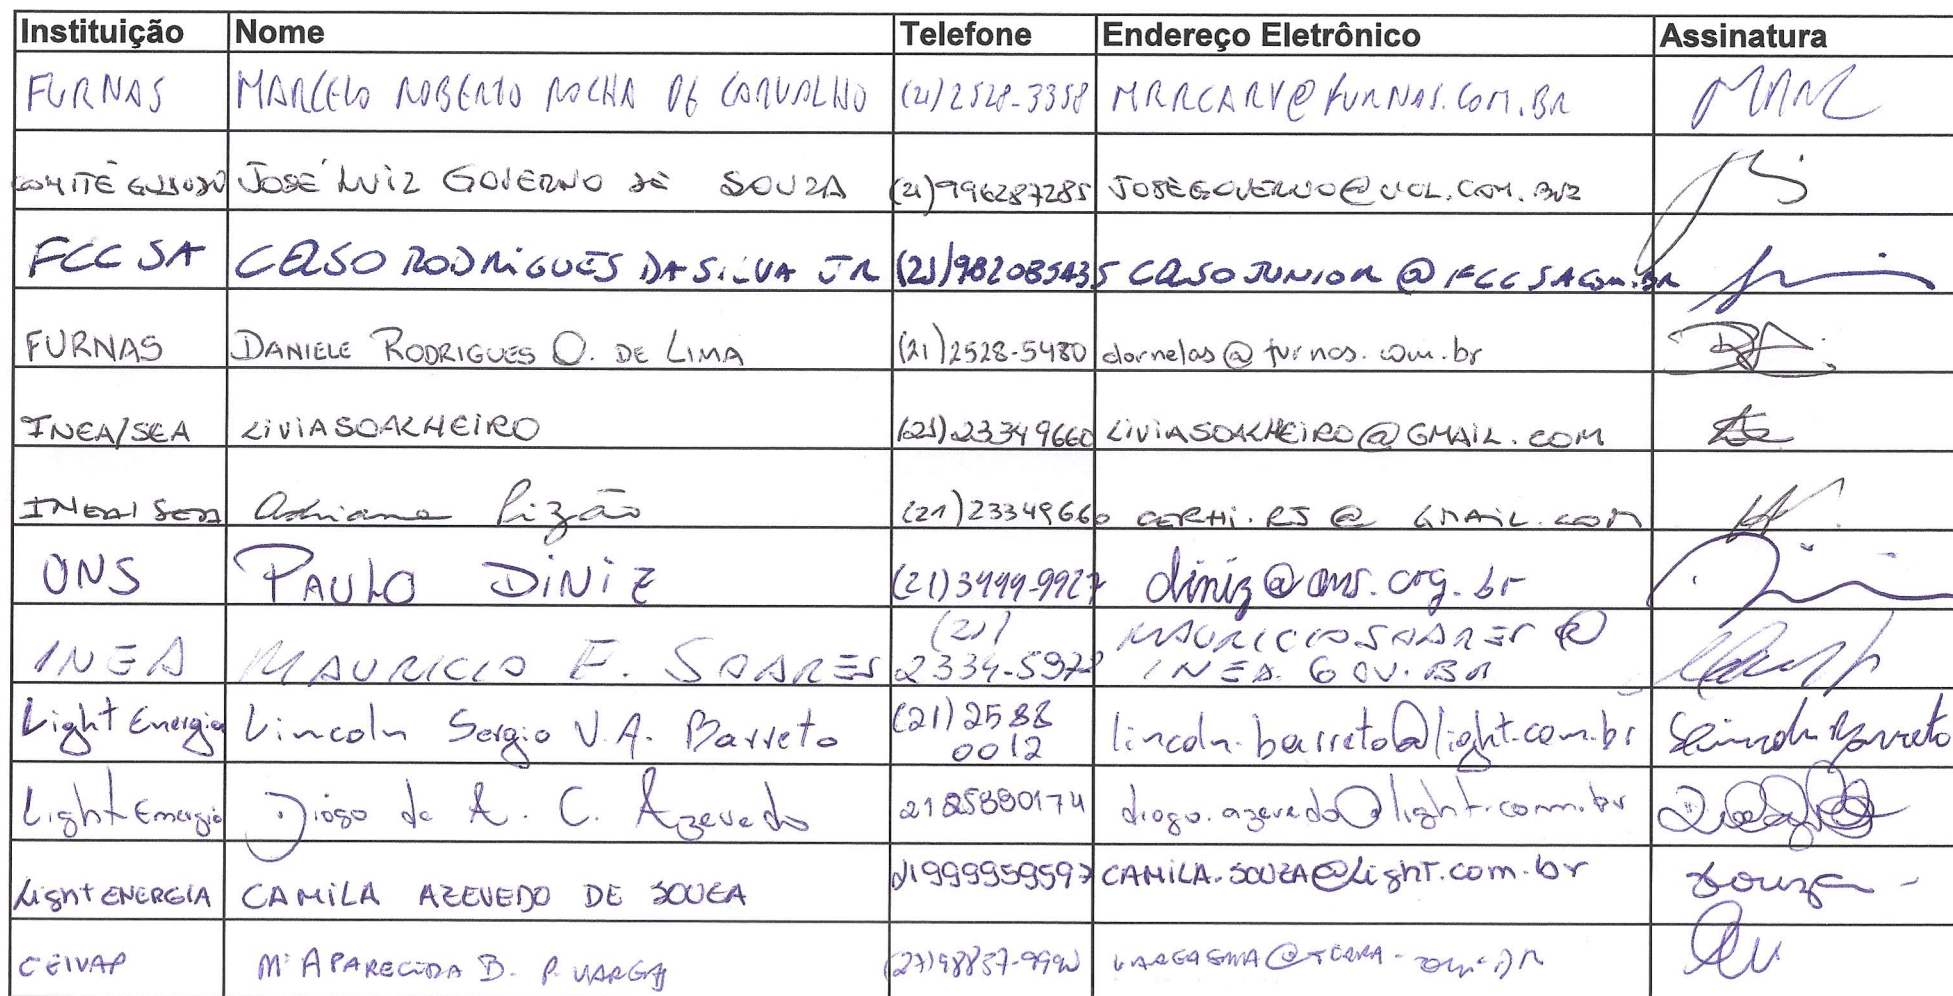 Instituição Nome Telefone Endereço Eletrônico Assinatura
FURNAS MARCELO ROBERTO ROCHA DE CARVALHO (21)2528-3358 MRRCARV@FURNAS.COM.BR
COMITÊ GUANDU JOSÉ LUIZ GOVERNO DE SOUZA (21)996287285 JOSEGOVERNO@UOL.COM.BR
FCC SA CELSO RODRIGUES DA SILVA JR (21)982085435 CELSOJUNIOR@FCCSA.COM.BR
FURNAS DANIELE RODRIGUES O. DE LIMA (21)2528-5480 dornelas@furnas.com.br
INEA/SEA LIVIA SOALHEIRO (21)23349660 LIVIASOALHEIRO@GMAIL.COM
INEA/SEA Adriana (21)23349660 CERHI.RJ@GMAIL.COM
ONS PAULO DINIZ (21)3444-9927 diniz@ons.org.br
INEA MAURICIO F. SOARES (21) 2334-5972 MAURICIOSOARES@
INEA.GOV.BR
Light Energia Lincoln Sergio V.A. Barreto (21)2588 lincoln.barreto@light.com.br Lincoln Barreto
0012
Light Energia Diogo de A. C. Azevedo diogo.azevedo@light.com.br
Light ENERGIA CAMILA AZEVEDO DE SOUZA 21999959597 CAMILA.SOUZA@Light.com.br Souza
CEIVAP Mª APARECIDA B. P. VARGAS